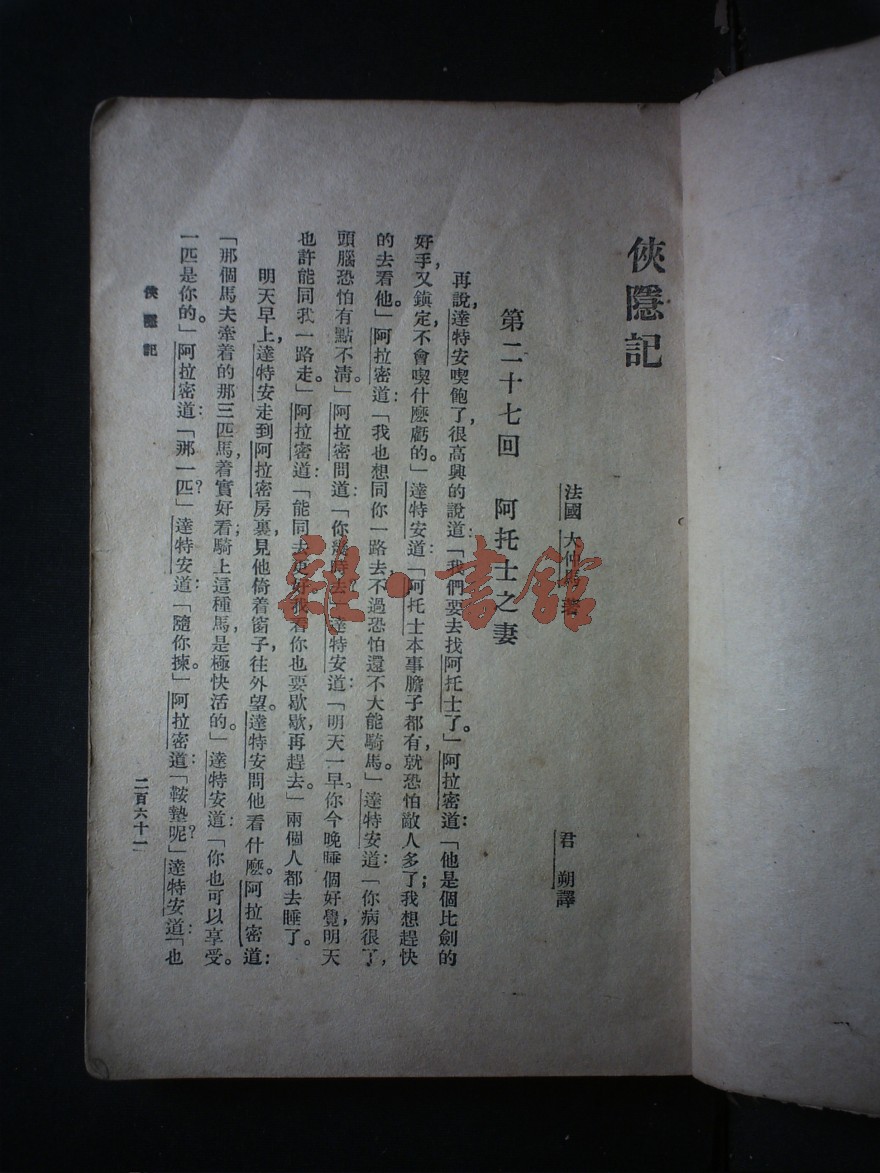 俠隱記
法國 大仲馬著
君朔譯
第二十七回 阿托士之妻
再說，達特安喫飽了，很高興的說道：「我們要去找阿托士了。」阿拉密道：「他是個比劍的
好手，又鎮定，不會喫什麽虧的。」達特安道：「阿托士本事膽子都有，就恐怕敵人多了；我想趕快
的去看他。」阿拉密道：「我也想同你一路去，不過恐怕還不大能騎馬。」達特安道：「你病很了，
頭腦恐怕有點不清。」阿拉密問道：「你幾時去」達特安道：「明天一早。你今晚睡個好覺，明天
也許能同我一路走。」阿拉密道：「能同去更好，我看你也要歇歇，再趕去。」兩個人都去睡了。
明天早上，達特安走到阿拉密房裏，見他倚着窗子，往外望。達特安問他看什麽。阿拉密道：
「那個馬夫牽着的那三匹馬，着實好看；騎上這種馬，是極快活的。」達特安道：「你也可以享受。
一匹是你的。」阿拉密道：「那一匹？」達特安道：「隨你揀。」阿拉密道：「鞍墊呢？」達特安道：「也
俠隱記
二百六十一
雜·書館